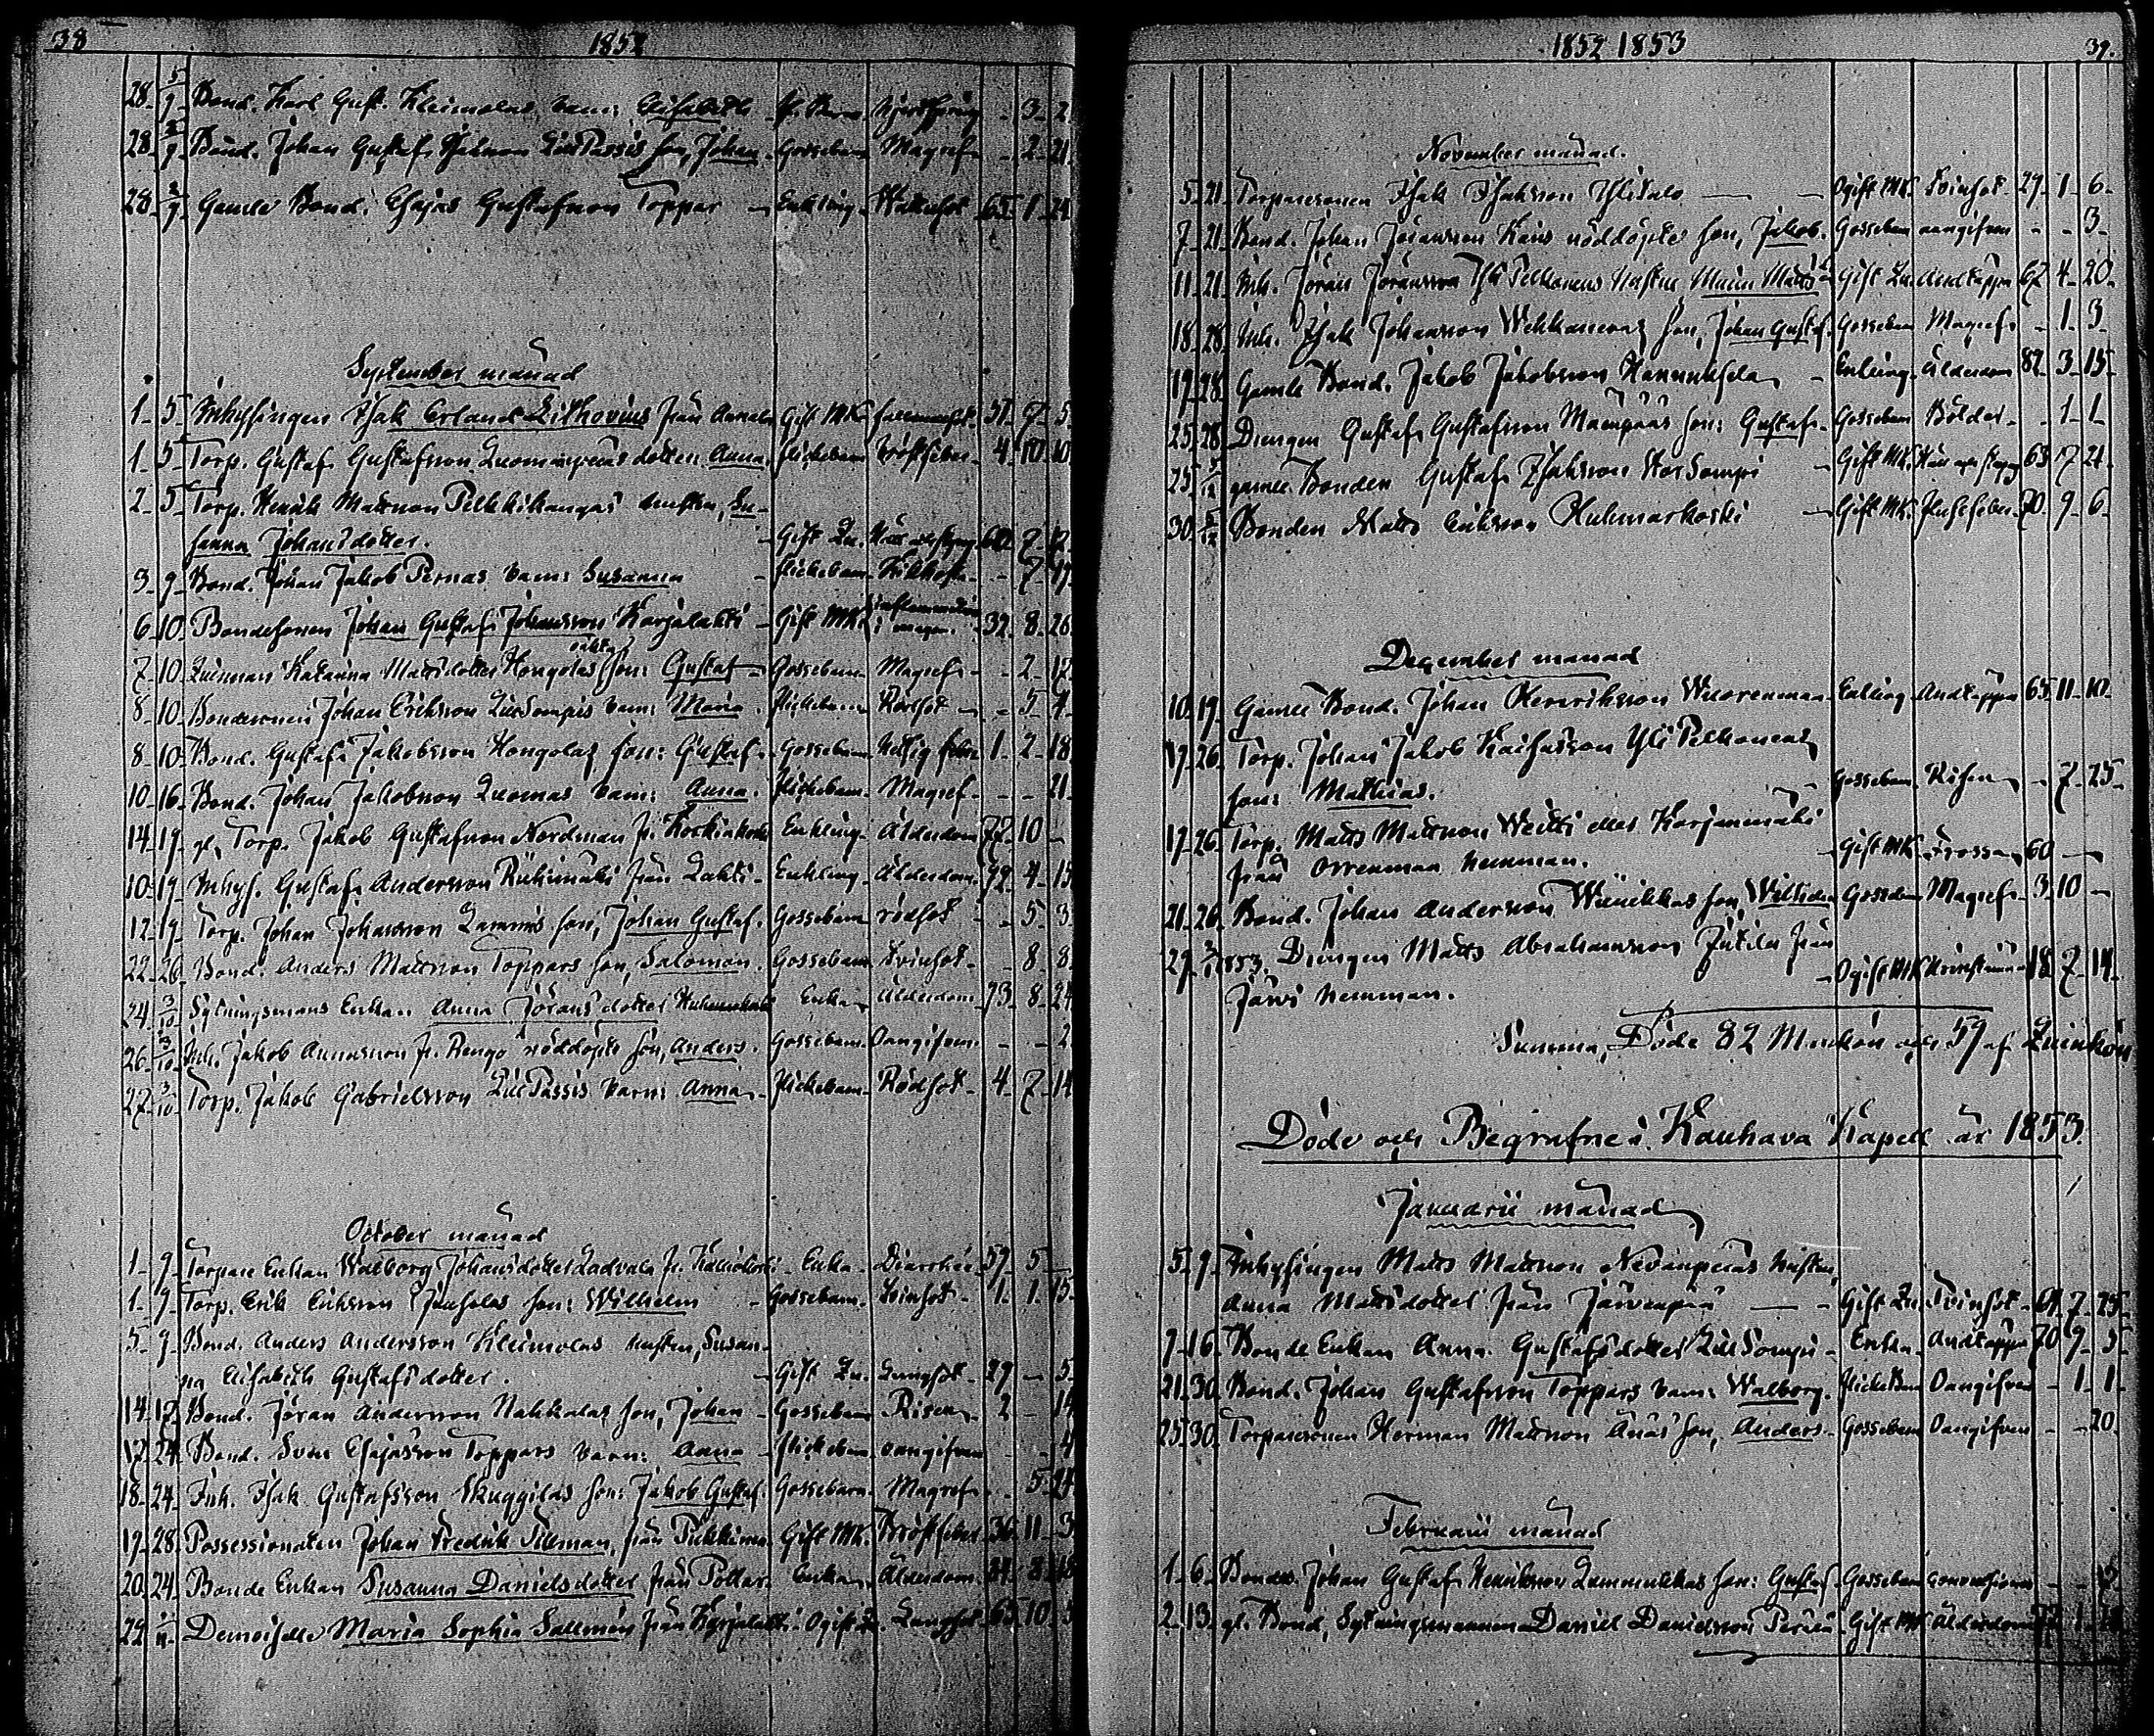 38
1852
28 5/9 Bond. Karl Gust. Kleimolas barn: Elisabeth 3 2
28 5/9 Bond. Johan Gustaf LillPassis son, Johan Gossebarn Magref 2 21
28 5/9 Gamle Bond. Esajas Gustafsson Toppar Enkling Wattusot 65 1 24
September månad
1 5 Inhysingen Isak Erland Lithovius från Gift MK 51 7 5
1 5 Torp. Gustaf Gustafsson Luomanpääs dotter Anna Flickebarn Bröstfeber 4 10 10
2 5 Torp. Henrik Mattsson Pelkkikangas hustru, Su-
sanna Johansdotter. Gift Qu. Håll och styng 60 7 12
3 9 Bond. Johan Jakob Pernas barn: Susanna Flickebarn Kikhosta 7 19
6 10 Bondesonen Johan Gustaf Johansson Karjalahti Gift MK inflammation i magen. 32 8 26
7 10 Qvinnan Katarina Mattsdotter Hongolas oäkta son: Gustaf Gossebarn Magref 2 12
8 10 Bondesonen Johan Eriksson LillSompis barn: Maria Flickebarn Rödsot 5 4
8 10 Bond. Gustaf Jakobsson Hongolas son: Gustaf Gossebarn feber 1 2 18
10 16 Bond. Johan Jakobsson Luomas barn: Anna. Flickebarn Magref 21
14 19 gl. Torp. Jakob Gustafsson Nordman fr. Enkling Ålderdom 77 10
10 19 Inhys. Gustaf Andersson Riihimäki från Lahti Enkling Ålderdom 72 4 15
12 19 Torp. Johan Johansson Lammis son, Johan Gustaf. Gossebarn rödsot 5 3
22 26 Bond. Anders Mattsson Toppars son, Salomon. Gossebarn Tvinsot 8 8
24 3/10 Sytningsmans Enkan Anna Jöransdotter Enka Ålderdom 73 8 24
26 3/10 Inh. Jakob Annasson fr. Rengo nöddöpte son, Anders. Gossebarn Oangifven 2
27 3/10 Torp. Jakob Gabrielsson LillPassis barn: Anna Flickebarn Rödsot 4 7 14
October månad
1 9 Torpare Enkan Walborg Johansdotter Ladvala fr. Enka Diarrhée 59 5
1 9 Torp. Erik Eriksson son: Wilhelm Gossebarn Tvinsot 1 1 15
5 9 Bond. Anders Andersson Kleimolas hustru, Susan-
na Elisabeth Gustafsdotter. Gift Qu. Lungsot 29 5
14 17 Bond. Jöran Andersson Nahkalas son, Johan Gossebarn Risen 2 14
17 24 Bond. Sven Esajasson Toppars barn: Anna Flickebarn oangifven 4
18 24 Inh. Isak Gustafsson Skuggilas son: Jakob Gustaf. Gossebarn Magref 5 24
19 28 Possessionaten Johan Fredrik Tillman, från Gift MK. Bröstfeber 36 11 3
20 24 Bonde Enkan Susanna Danielsdotter från Pottar Enka Ålderdom 84 8 18
22 1/11 Demoiselle Maria Sophia Sallmén från Karjalahti Ogift Qu. Lungsot 65 10 3
1852 1853
39.
November månad.
5 21 Torparesonen Isak Isaksson Ylitalo Ogift MK. Tvinsot 29 1 6
7 21 Bond. Johan Jöransson Kaus nöddöpte son, Jakob. Gossebarn oangifven 3
11 21 Inh. Jöran Jöransson Yli Pelkonens hustru Maria Mattsdr Gift Qu. Andtäppa 67 4 20
18 28 Inh. Isak Johansson Wehkaneras son, Johan Gustaf. Gossebarn Magref 1 3
19 28 Gamle Bond. Jakob Jakobsson Hannuksela Enkling Ålderdom 82 3 15
25 28 Drengen Gustaf Gustafsson Mäenpääs son: Gustaf. Gossebarn Bölder 1 1
25 5/12 gamle Bonden Gustaf Isaksson StorSompi Gift MK. Håll och styng 63 7 21
30 5/12 Bonden Matts Eriksson Huhmarkoski Gift MK. 70 9 6
December månad
10 19 Gamle Bond. Johan Henriksson Wuorenmaa Enkling Andtäppa 65 11 10
17 26 Torp. Johan Jakob Kaisasson Yli Pelkoneras
son: Mathias. Gossebarn Risen 7 25
17 26 Torp. Matts Mattsson Weitti eller Korjenmäki
från Orrenmaa hemman. Gift MK Frossa 60
21 26 Bond. Johan Andersson Wäinikkas son, Wilhelm Gossebarn Magref 3 10
29 2/1 1853. Drengen Matts Abrahamsson Jutila från
Järvi hemman. Ogift MK 18 7 14
Summa, Döde 82 Mankön och 59 af Quinkön
Döde och Begrafne i Kauhava Kapell år 1853.
Januarii månad
5 9 Inhysingen Matts Mattsson Nevanperäs hustru,
Anna Mattsdotter från Järvenpää Gift Qu Tvinsot 61 7 25
7 16 Bonde Enkan Anna Gustafsdotter LillSompi Enka Andtäppa 70 9 5
21 30 Bond. Johan Gustafsson Toppars barn: Walborg. Flickebarn Oangifven 1 1
25 30 Torparesonen Herman Mattsson Ånäs son, Anders Gossebarn Oangifven 20
Februarii månad
1 6 Bondes. Johan Gustaf Henriksson Lammukkas son: Gustaf Gossebarn convulsioner
2 13 gl. Bond, Sytningsmannen Daniel Danielsson Gift MK Ålderdom